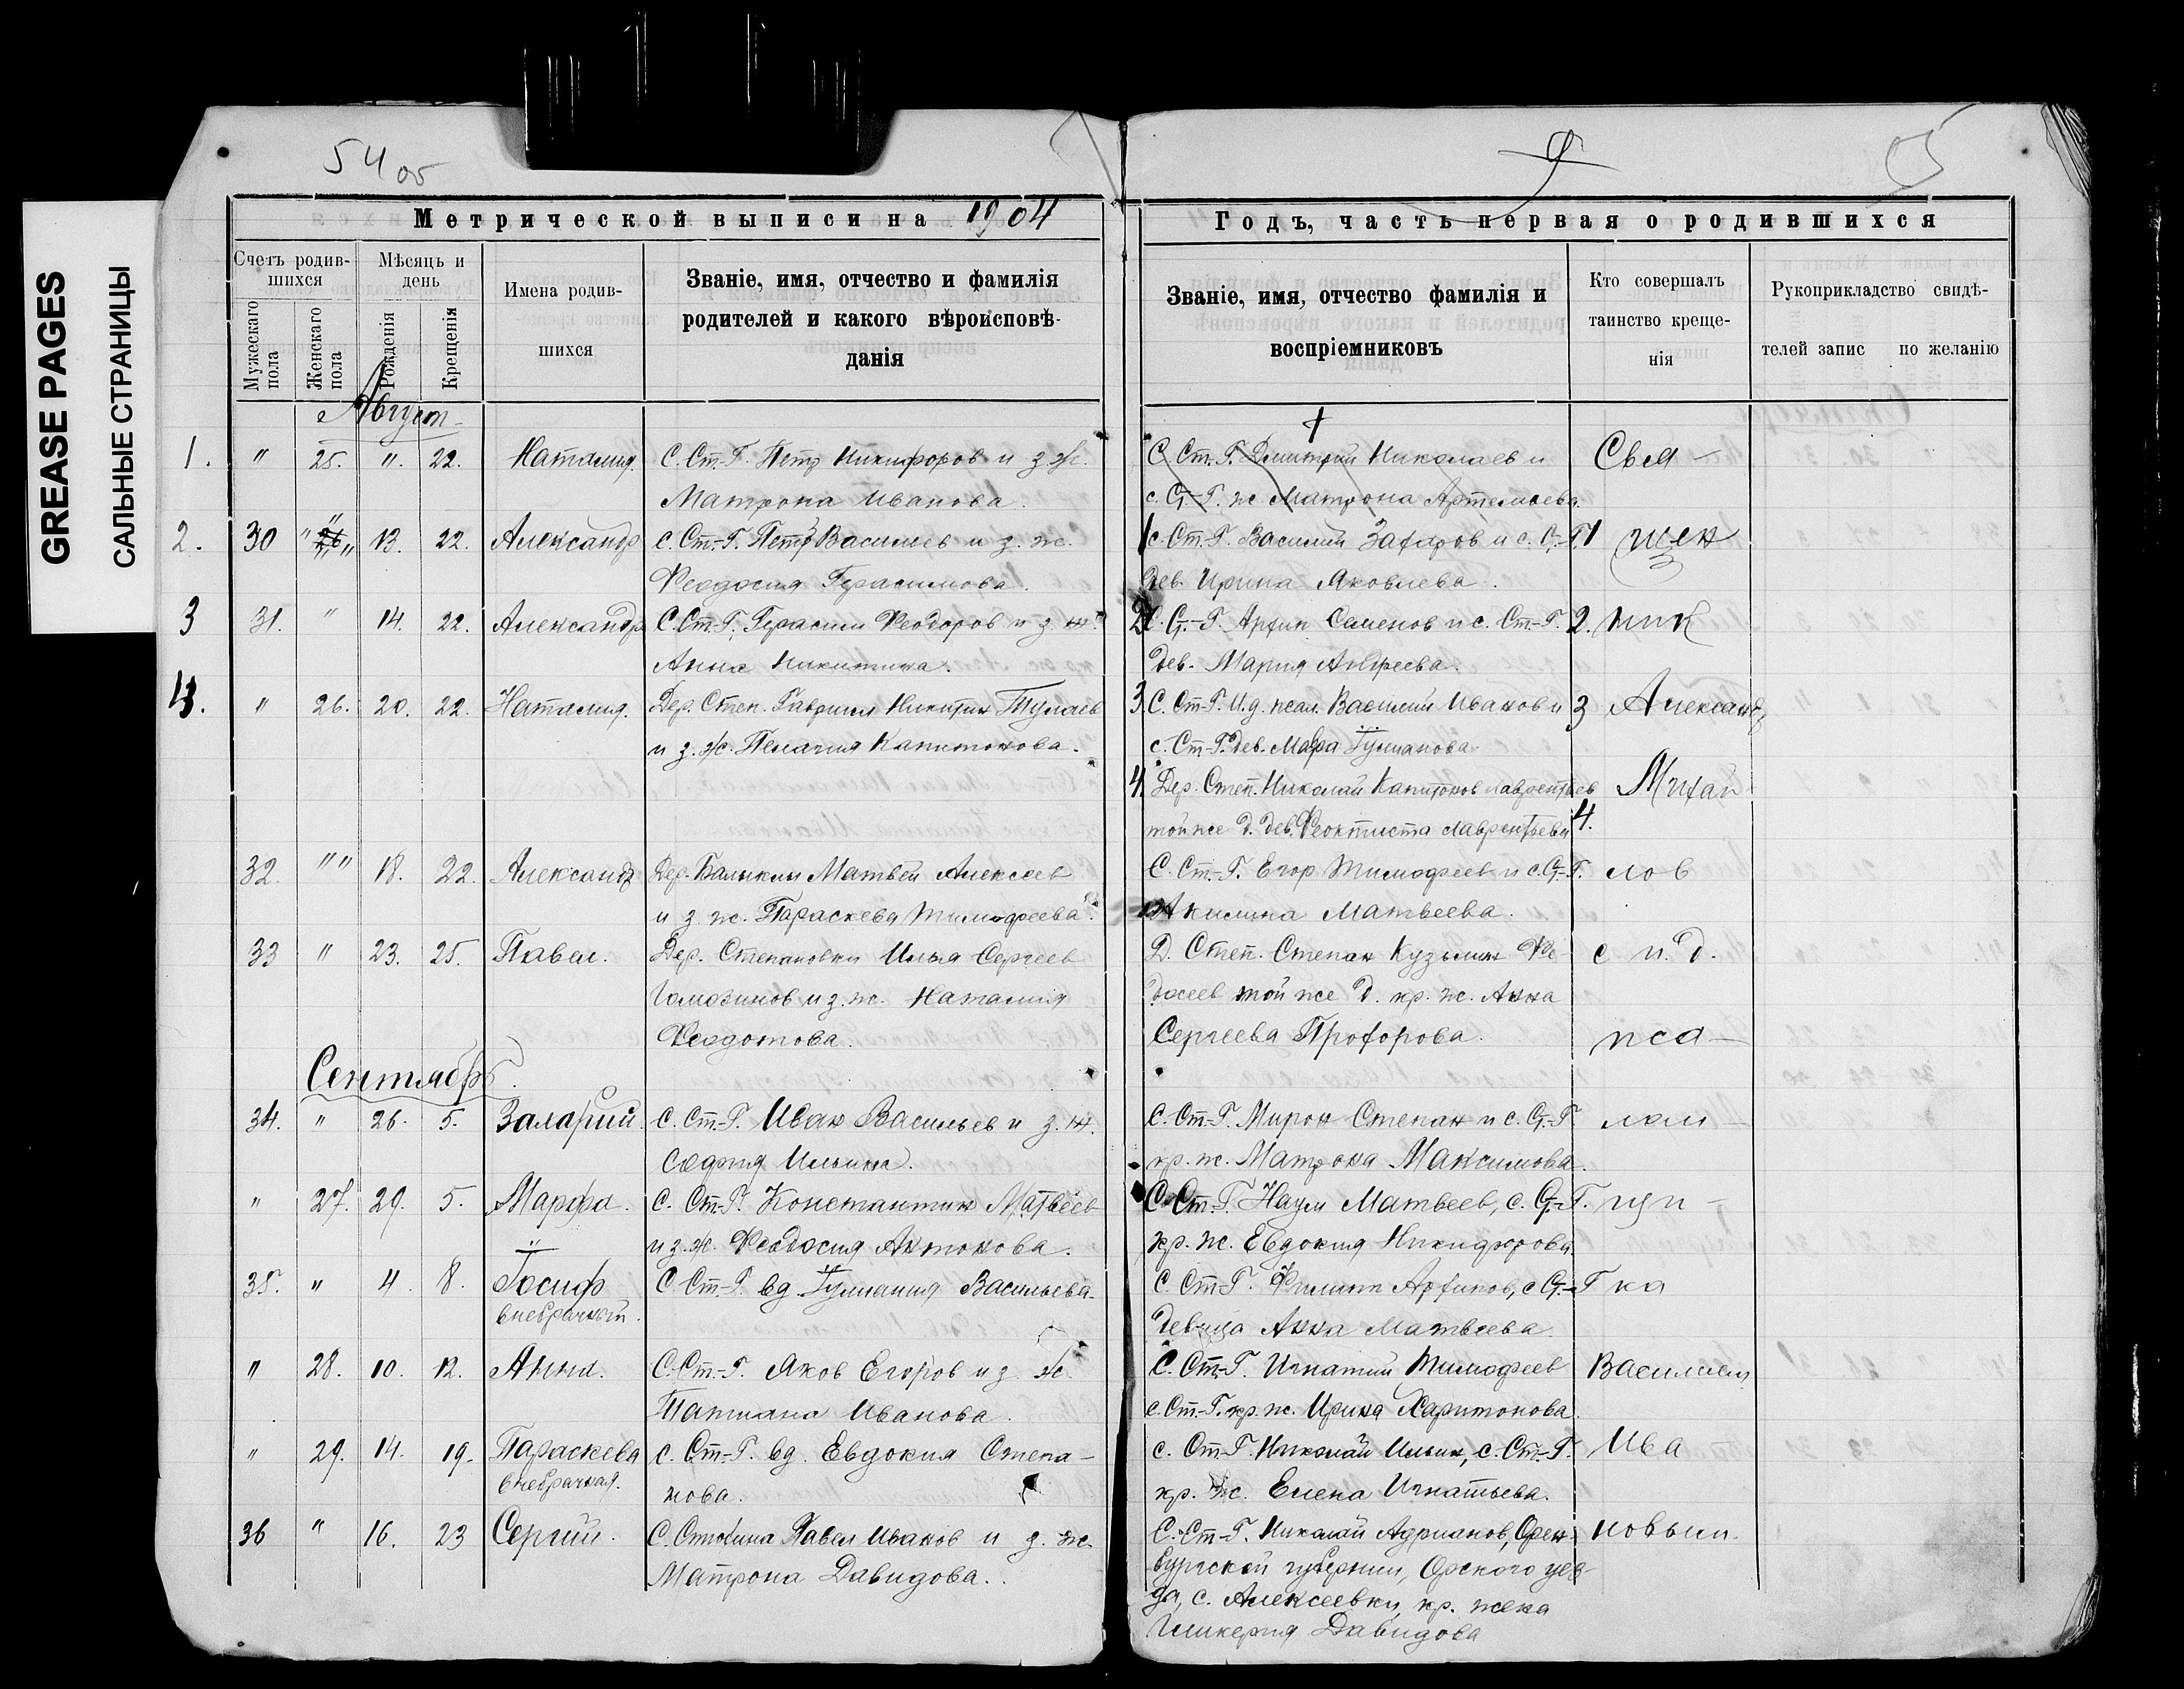 GREASE PAGES
САЛЬНЫЕ СТРАНИЦЫ
54 об
9
Метрической выписи на 1904
Счетъ родив-
шихся
Мужескаго пола
Женскаго пола
Мѣсяцъ и
день
Рожденія
Крещенія
Имена родив-
шихся
Званіе, имя, отчество и фамилія
родителей и какого вѣроисповѣ-
данія
Август
1. " 25. ". 22. Наталия С. Ст.-Г. Петр Никифоров и з. ж.
Матрона Иванова.
2. 30 " 13. 22. Александр с. Ст.-Г. Петр Васильев и з. ж.
Феодосия Герасимова.
3 31. " 14. 22. Александр С. Ст.-Г. Герасим Феодоров и з. ж.
Анна Никитина.
4. " 26. 20. 22. Наталия. Дер. Степ. Гавриил Никитин Тулаев
и з. ж. Пелагия Капитонова.
32. "" 18. 22. Александр Дер. Балыклы Матвей Алексеев
и з. ж. Параскева Тимофеева.
33 " 23. 25. Павел. Дер. Степановки Илья Сергеев
и з. ж. Наталия
Феодотова.
Сентябрь.
34. " 26. 5. С. Ст.-Г. Иван Васильев и з. ж.
София Ильина.
" 27. 29. 5. Марфа. с. Ст.-Г. Константин Матвеев
и з. ж. Феодосия Антонова.
35. " 4. 8. Іосиф С. Ст.-Г. вд. Іулиания Васильева.
внебрачный.
" 28. 10. 12. Анна. С. Ст.-Г. Яков Егоров и з. ж.
Татиана Иванова.
" 29. 14. 19. Параскева с. Ст.-Г. вд. Евдокия Степа-
внебрачная. нова.
36 " 16. 23 Сергий. Павел Иванов и з. ж.
Матрона Давидова.
Годъ, часть первая о родившихся
Званіе, имя, отчество фамилія и
воспріемниковъ
Кто совершалъ
таинство креще-
нія
Рукоприкладство свидѣ-
телей запис по желанію
С. Ст.-Г. Димитрий Николаев и Свя-
с. Ст.-Г. ж. Матрона Артемьева.
1 с. Ст.-Г. Василий Захаров и с. Ст.-Г. 1 щен
дев. Ирина Яковлева.
2 С. Ст.-Г. Архип Семенов и с. Ст.-Г. 2. ник
дев. Мария Андреева.
3 С. Ст.-Г. И. д. псал. Василий Иванов и 3 Александр
с. Ст.-Г. дев. Мавра Іулианова
4. Дер. Степ. Николай Капитонов Лаврентьев Михай-
той же д. дев. Феоктиста Лаврентьева 4.
С. Ст.-Г. Егор Тимофеев и с. Ст.-Г. лов
Акилина Матвеева.
Д. Степ. Степан Кузьмин Фе- с и. д.
досеев той же д. кр. ж. Анна
Сергеева Прохорова. пса-
С. Ст.-Г. Мирон Степан и с. Ст.-Г. лом-
кр. ж. Матрона Максимова.
С. Ст.-Г. Наум Матвеев, с. Ст.-Г. щи-
кр. ж. Евдокия Никифорова.
с. Ст.-Г. Филипп Архипов, с Ст.-Г ка
девица Анна Матвеева.
С. Ст.-Г. Игнатий Тимофеев Василием
с. Ст.-Г. кр. ж. Ирина Харитонова.
с. Ст.-Г. Николай Ильин, с. Ст.-Г. Ива
кр. ж. Елена Игнатьева.
С. Ст.-Г. Николай Адрианов, Орен- новым.
бургской губернии, Орского уез-
да, с. Алексеевки, кр. жена
Гликерия Давидова